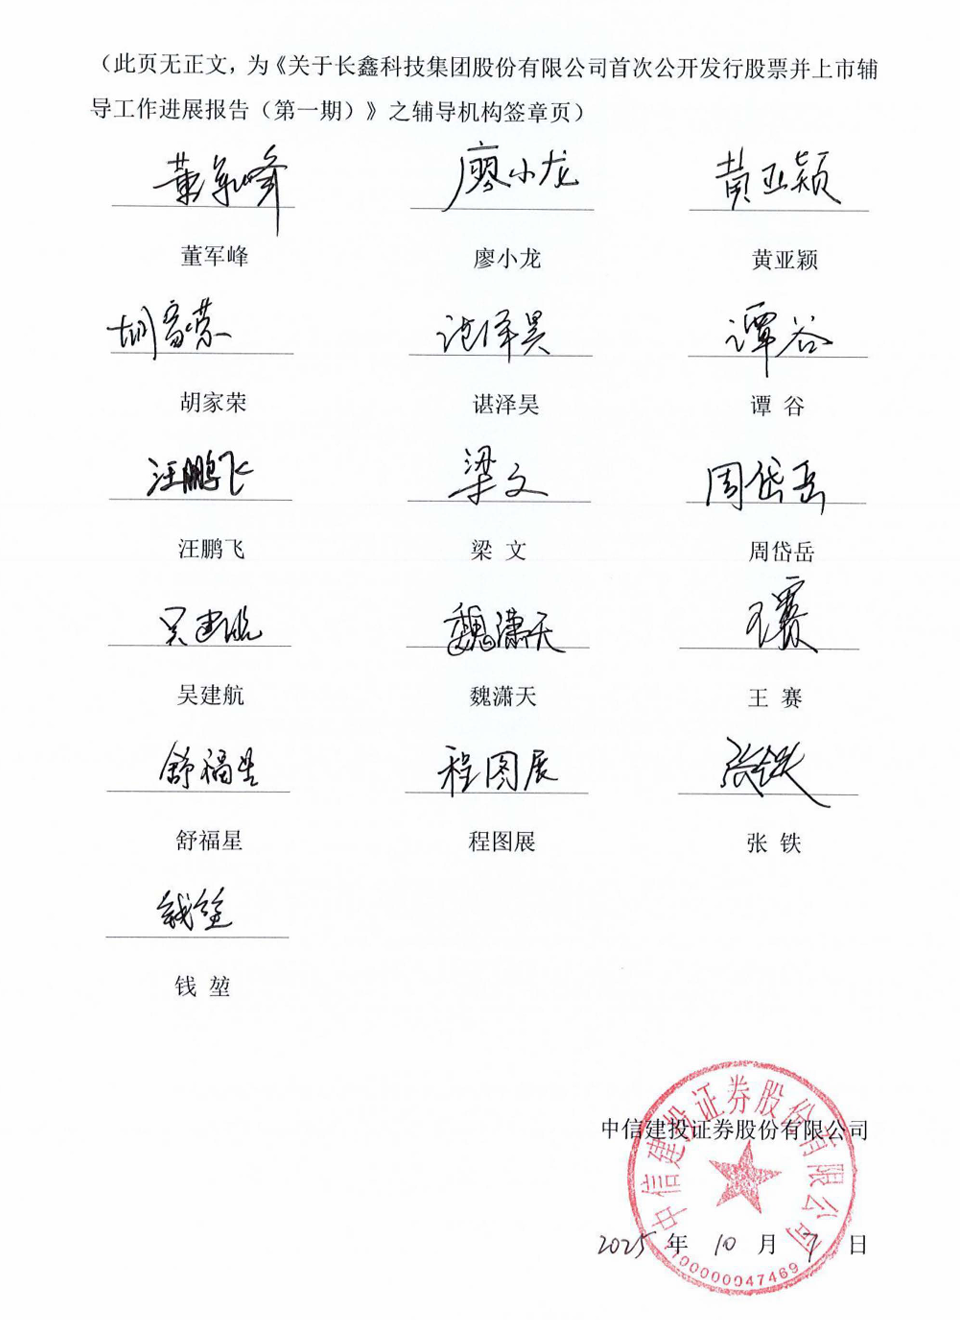 （此页无正文，为《关于长鑫科技集团股份有限公司首次公开发行股票并上市辅
导工作进展报告（第一期）》之辅导机构签章页）
董军峰 廖小龙 黄亚颖
董军峰 廖小龙 黄亚颖
胡家荣 谌泽昊 谭谷
胡家荣 谌泽昊 谭 谷
汪鹏飞 梁文 周岱岳
汪鹏飞 梁 文 周岱岳
吴建航 魏潇天 王赛
吴建航 魏潇天 王 赛
舒福星 程图展 张铁
舒福星 程图展 张 铁
钱堃
钱 堃
中信建投证券股份有限公司
中信建投证券股份有限公司
2025 年 10 月 9 日